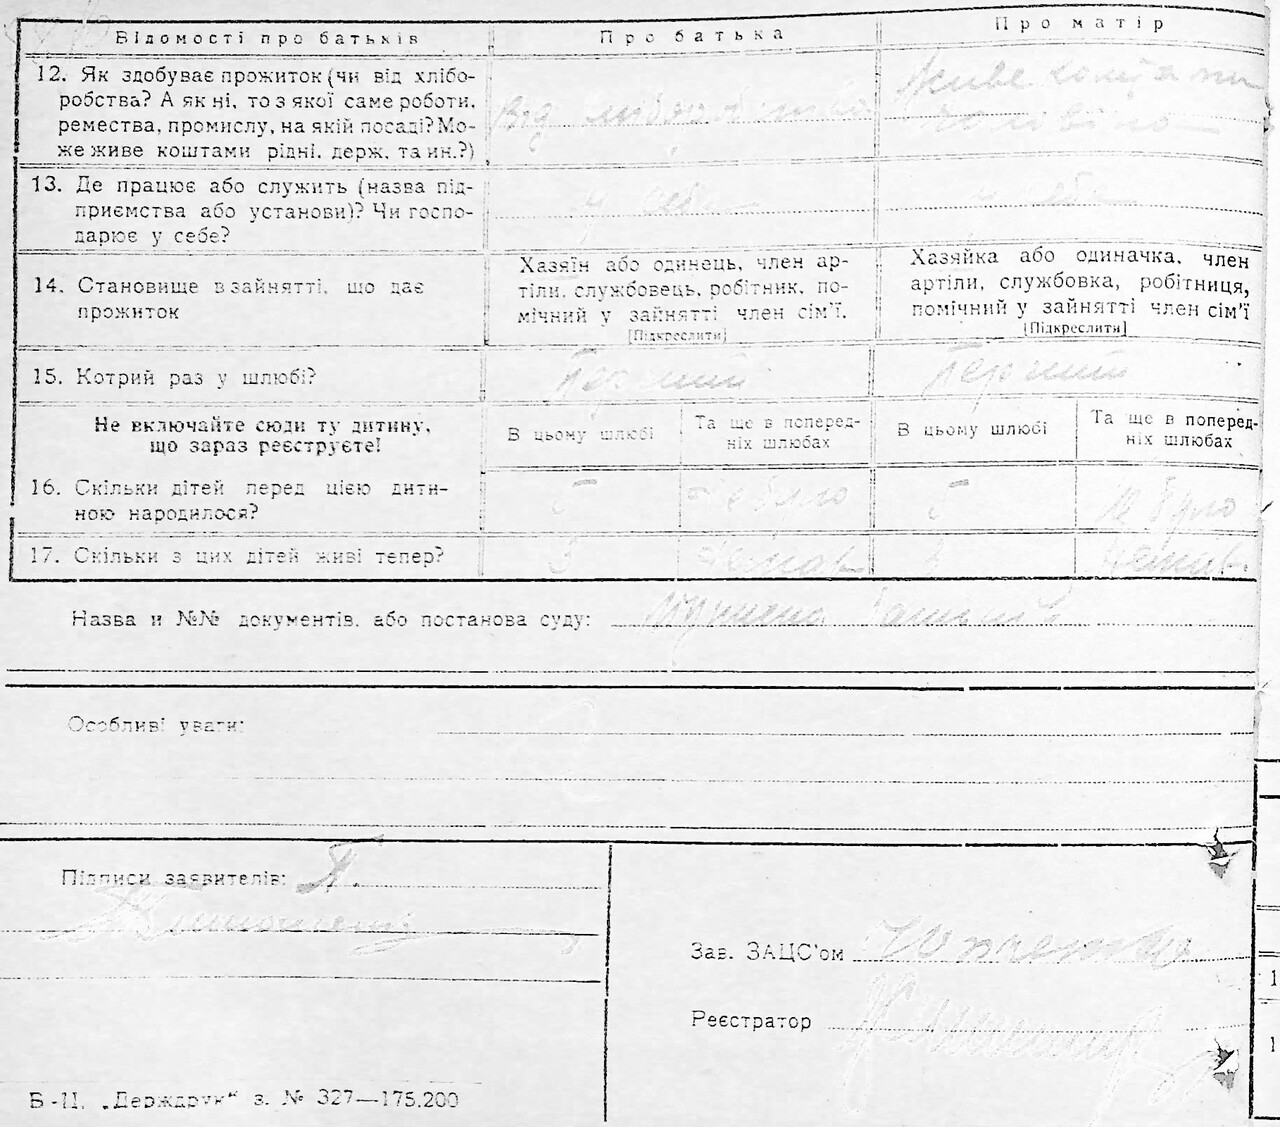 Відомості про батьків
Про батька
Про матір
12. Як здобуває прожиток (чи від хлібо-
робства? А як ні, то з якої саме роботи,
ремества, промислу, на якій посаді? Мо-
же живе коштами рідні, держ. та ин.?)
Від
Живе коштами
чоловіка
13. Де працює або служить (назва під-
приємства або установи)? Чи госпо-
дарює у себе?
у себе
у себе
14. Становище в зайнятті, що дає
прожиток
Хазяїн або одинець, член ар-
тіли, службовець, робітник, по-
мічний у зайнятті член сім'ї.
[Підкреслити]
Хазяйка або одиначка, член
артіли, службовка, робітниця,
помічний у зайнятті член сім'ї
[Підкреслити]
15. Котрий раз у шлюбі?
Перший
Перший
Не включайте сюди ту дитину,
що зараз реєструєте!
В цьому шлюбі
Та ще в поперед-
ніх шлюбах
В цьому шлюбі
Та ще в поперед-
ніх шлюбах
16. Скільки дітей перед цією дити-
ною народилося?
5
не було
5
не було
17. Скільки з цих дітей живі тепер?
3
немає
немає
Назва и №№ документів, або постанова суду:
Особливі уваги:
Підписи заявителів:
Зав. ЗАЦС'ом
Реєстратор
Б-11. „Держдрук“ з. № 327—175.200
1
1